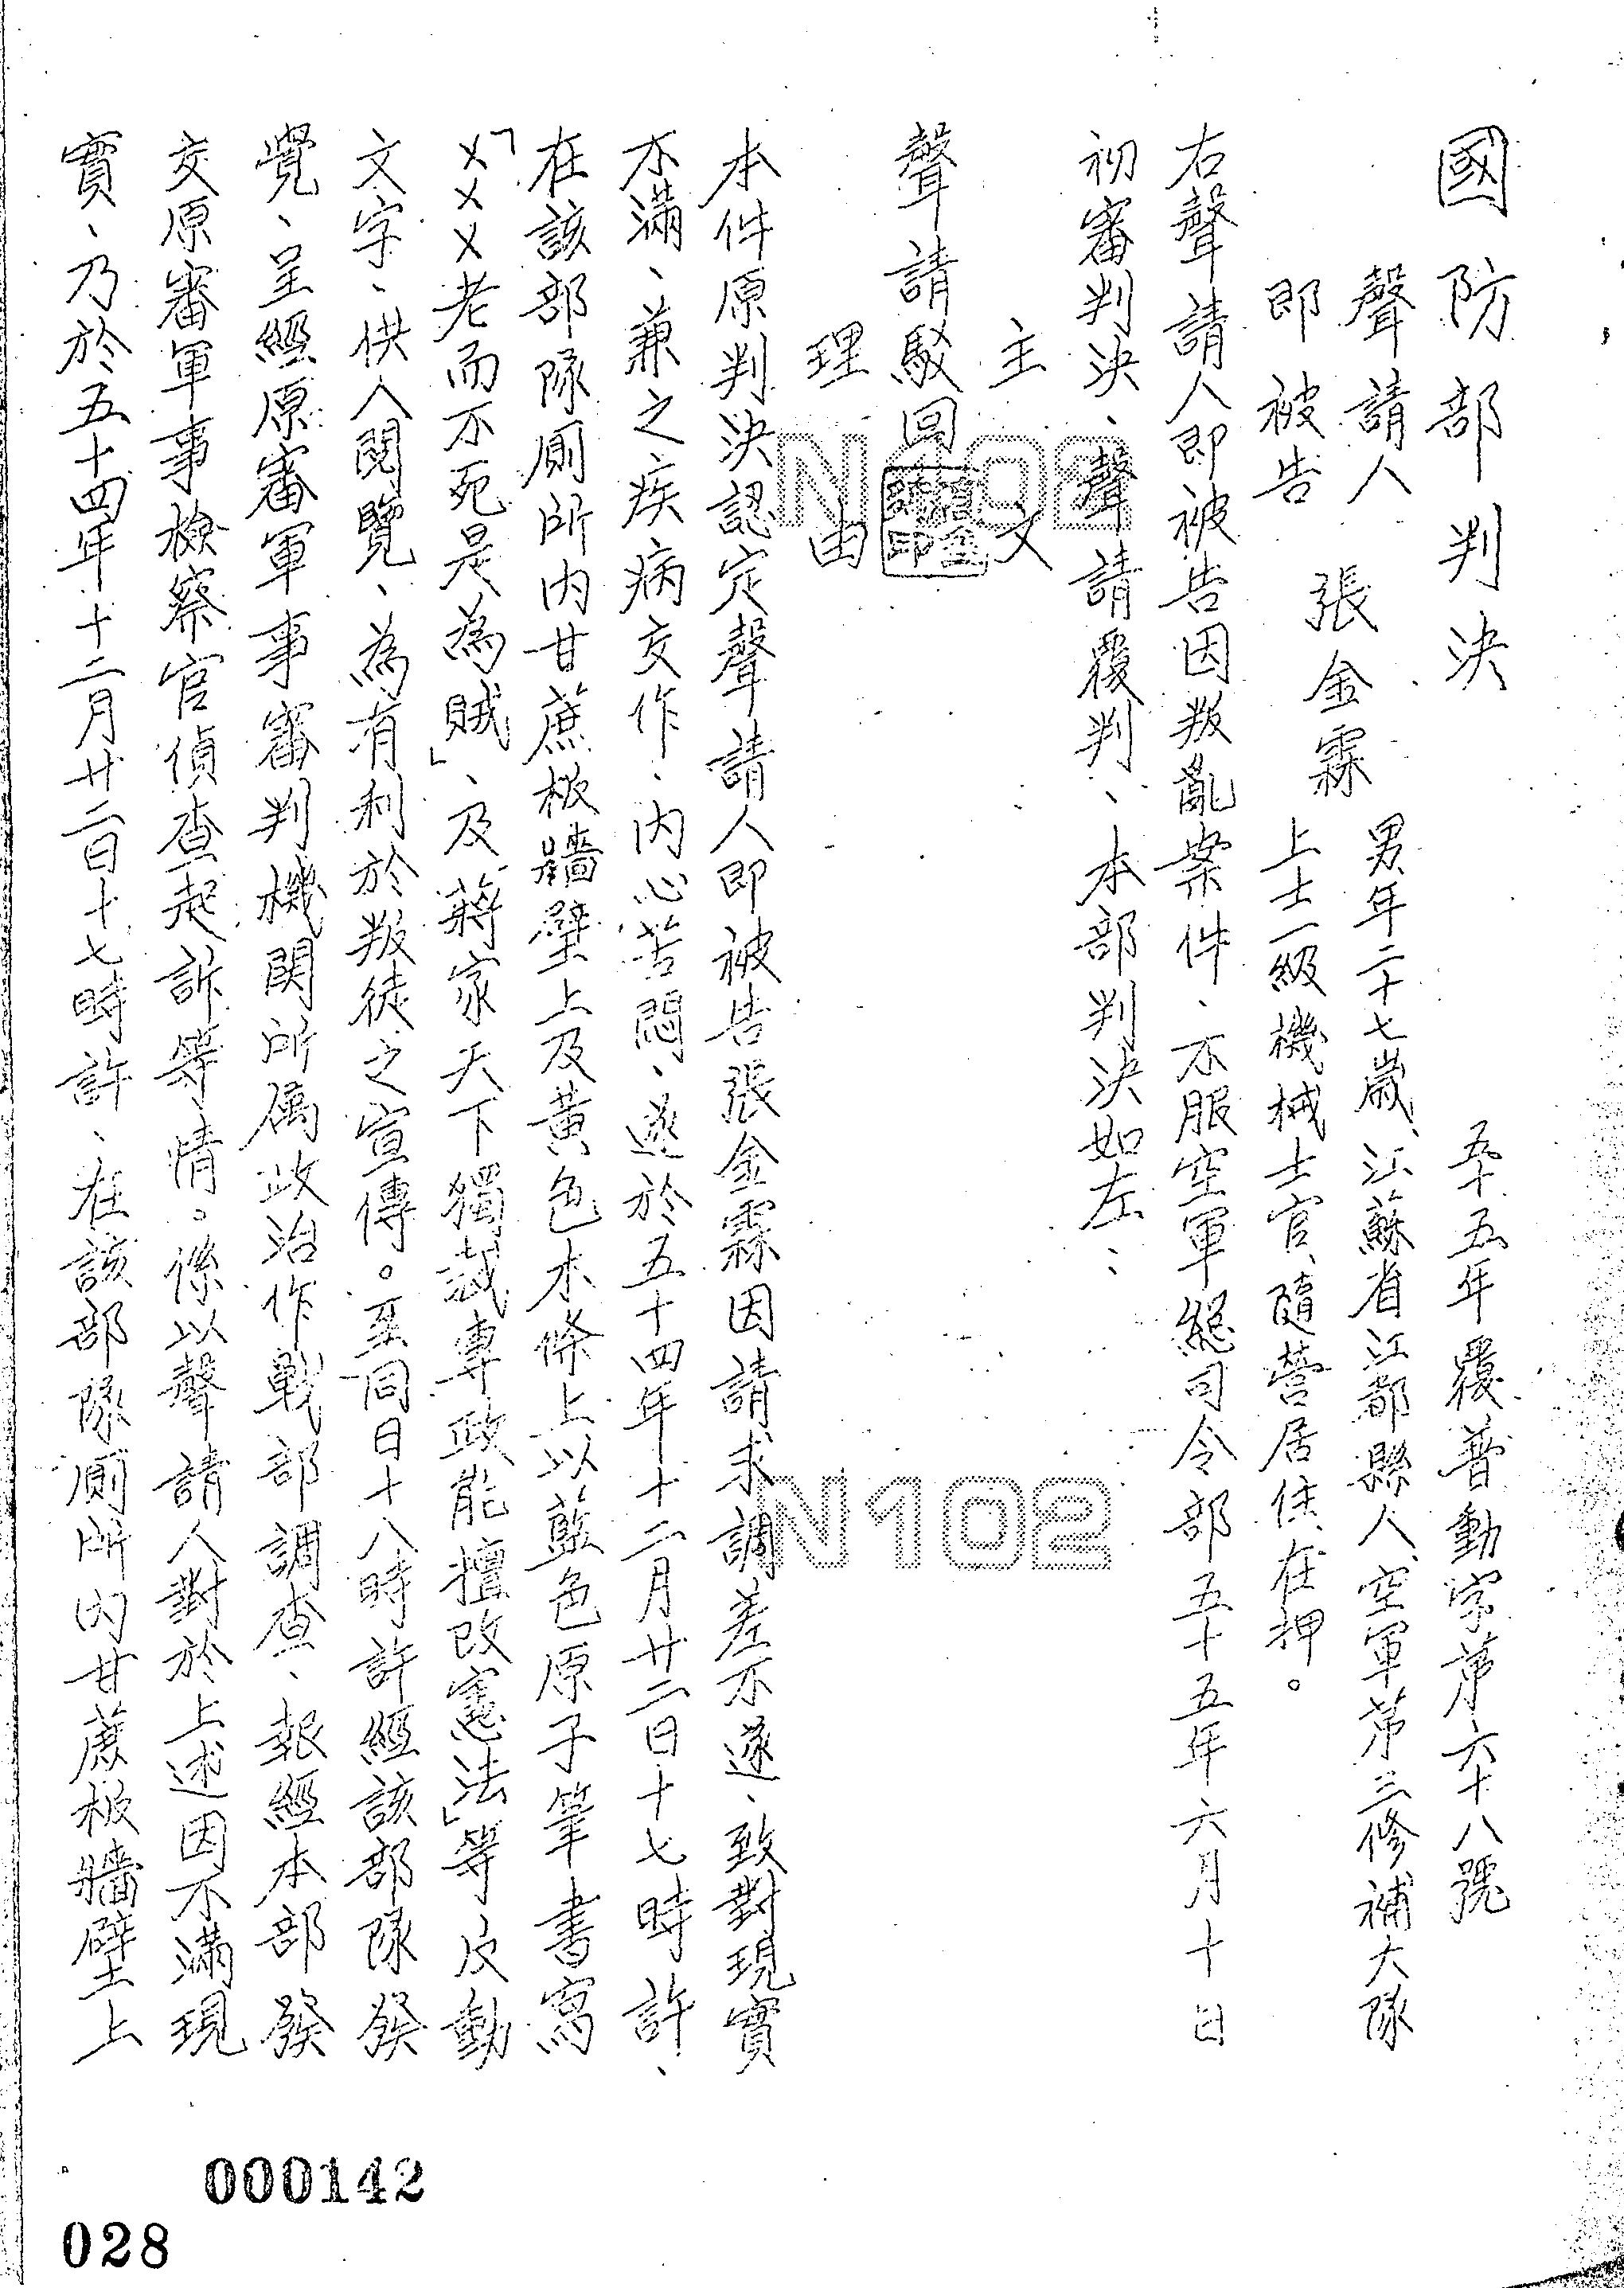 國防部判決　五十五年覆普動字第六十八號
聲請人　男年二十七歲、江蘇省江都縣人、空軍第三修補大隊
張金霖
即被告　上士一級機械士官、隨營居住、在押。
右聲請人即被告因叛亂案件、不服空軍總司令部五十五年六月十日
初審判決、聲請覆判、本部判決如左：
主文
聲請駁回
理由
本件原判決認定聲請人即被告張金霖因請求調差不遂、致對現實
不滿、兼之疾病交作、內心苦悶、遂於五十四年十二月廿二日十七時許、
在該部隊廁所內甘蔗板牆壁上及黃色木條上以藍色原子筆書寫
「XXX老而不死是為賊」、及蔣家天下獨裁專政能擅改憲法」等反動
文字、供人閱覽、為有利於叛徒之宣傳。至同日十八時許經該部隊發
覺、呈經原審軍事審判機関所屬政治作戰部調查、報經本部發
交原審軍事檢察官偵查起訴等情。係以聲請人對於上述因不滿現
實、乃於五十四年十二月廿二日十七時許、在該部隊廁所內甘蔗板牆壁上
N102
N102
000142
028